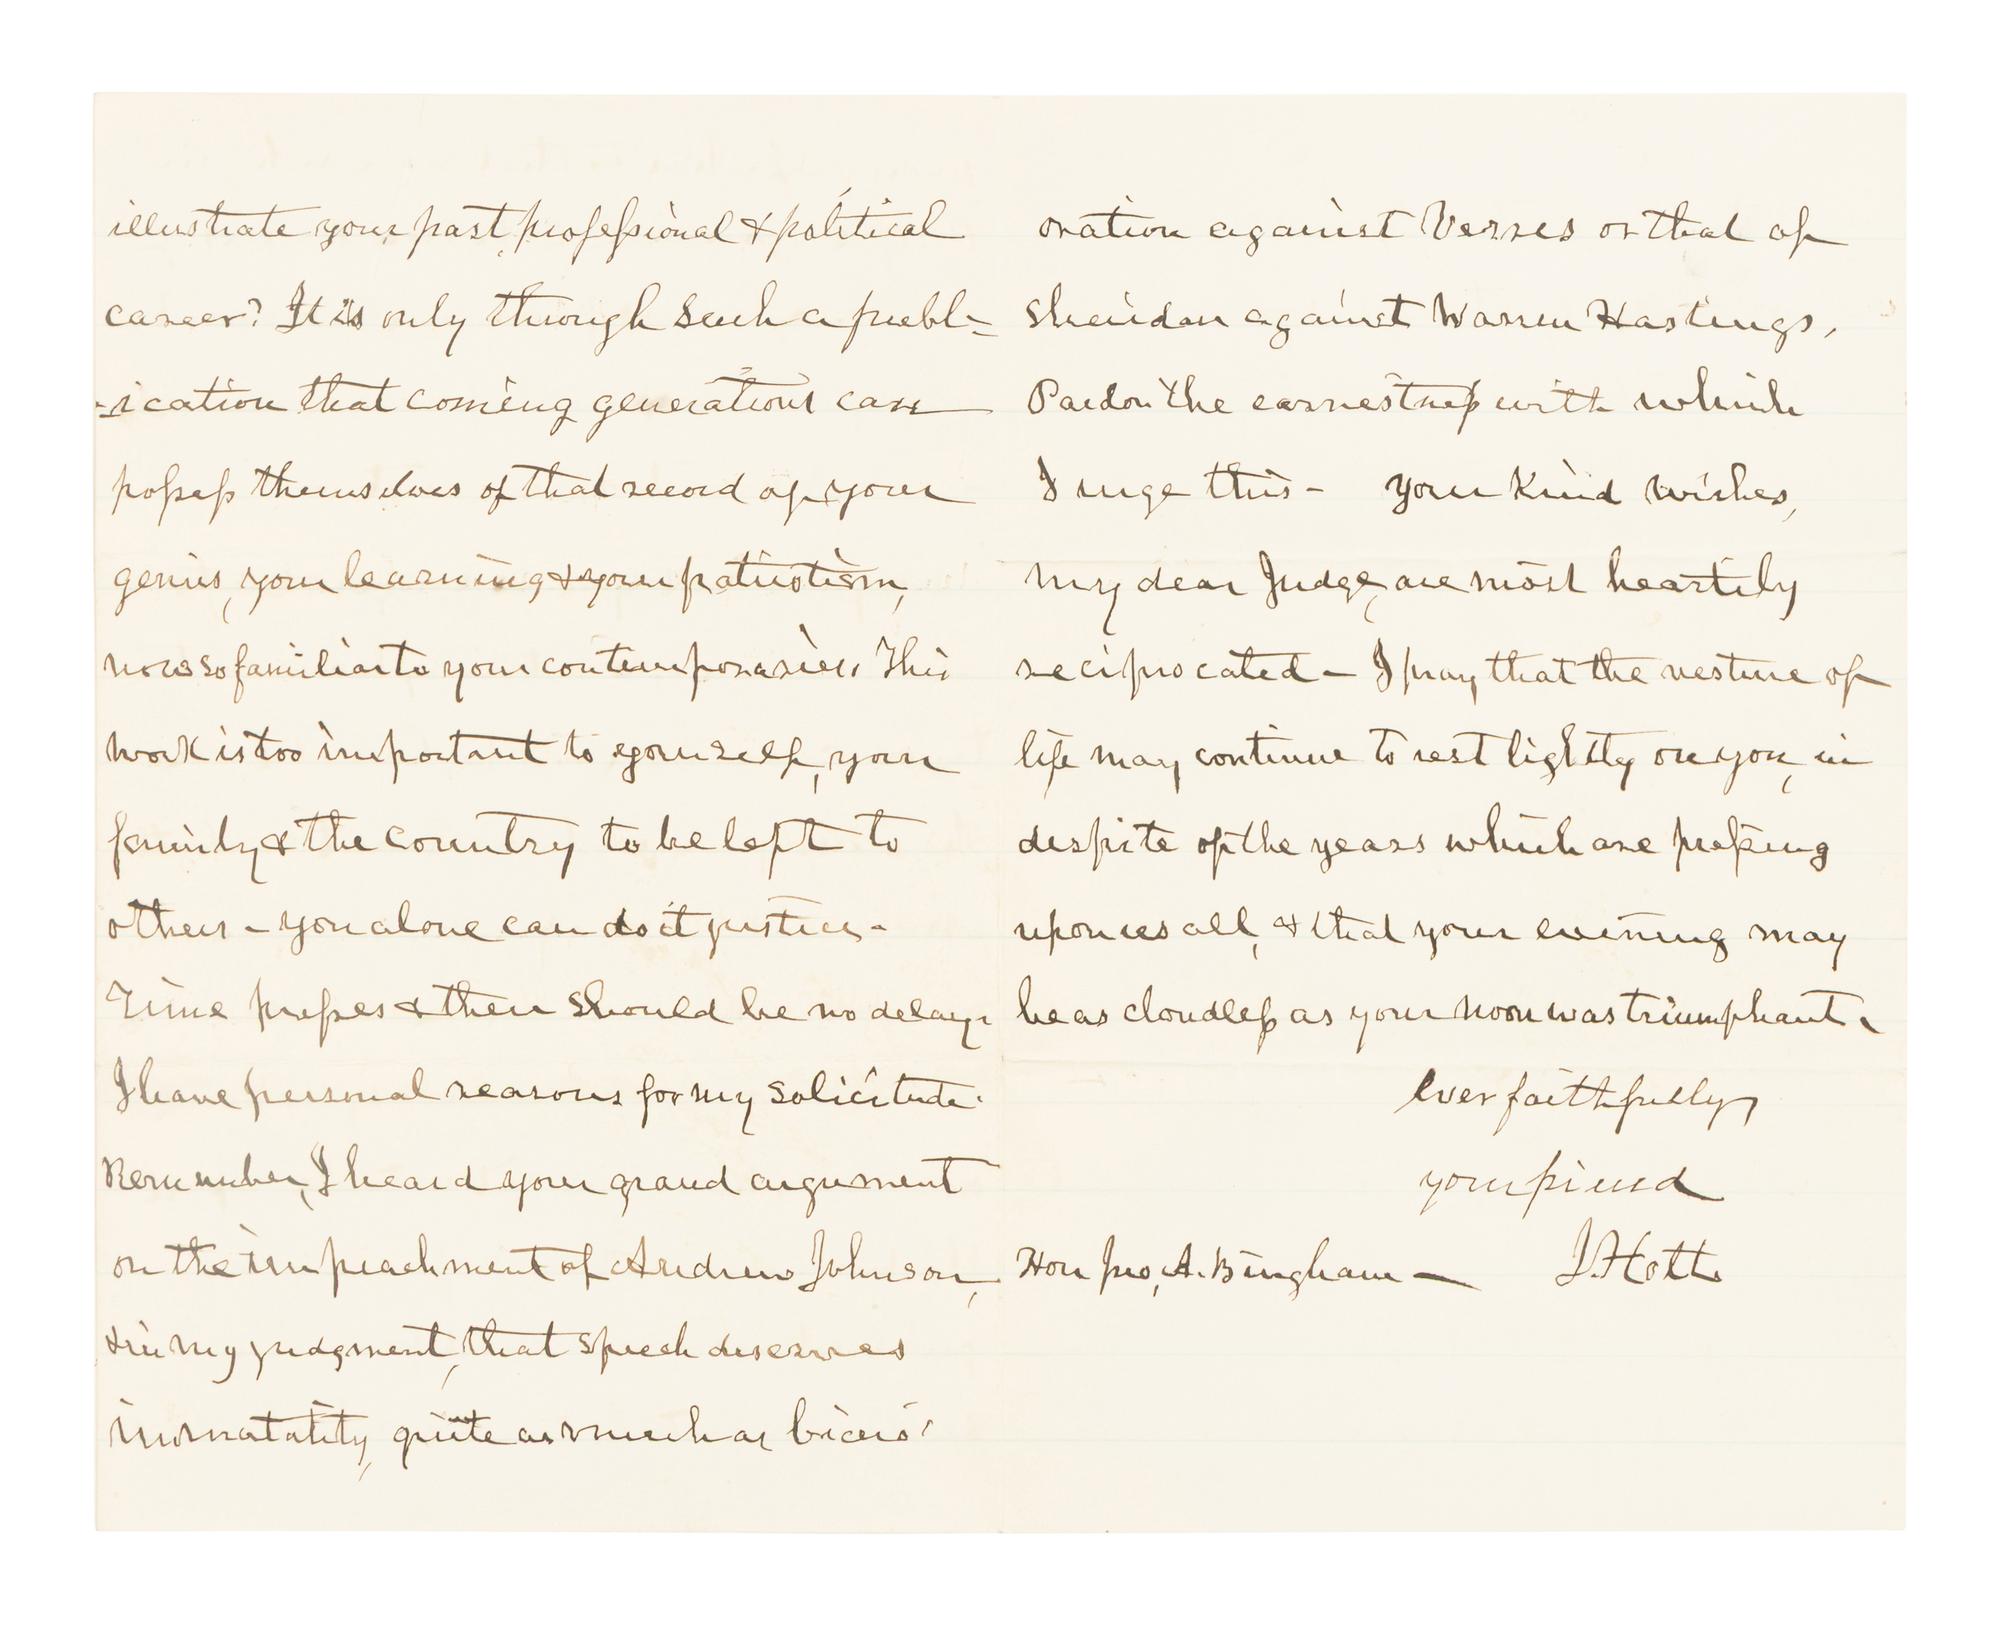 illustrate your past professional & political
career? It is only through such a publ-
-ication that coming generations can
possess themselves of that record of your
genius, your learning & your patriotism,
now so familiar to your contemporaries. This
work is too important to yourself, your
family & the country to be left to
others - you alone can do it justice -
Time presses & there should be no delay.
I have personal reasons for my solicitude.
Remember, I heard your grand argument
on the impeachment of Andrew Johnson,
& in my judgment, that speech deserves
immortality, quite as much as Cicero's
oration against Verres or that of
Sheridan against Warren Hastings.
Pardon the earnestness with which
I urge this - Your kind wishes,
my dear Judge, are most heartily
reciprocated - I pray that the vesture of
life may continue to rest lightly on you, in
despite of the years which are pressing
upon us all, & that your evening may
be as cloudless as your noon was triumphant.
Ever faithfully
your friend
J. Holt
Hon Jno, A. Bingham -